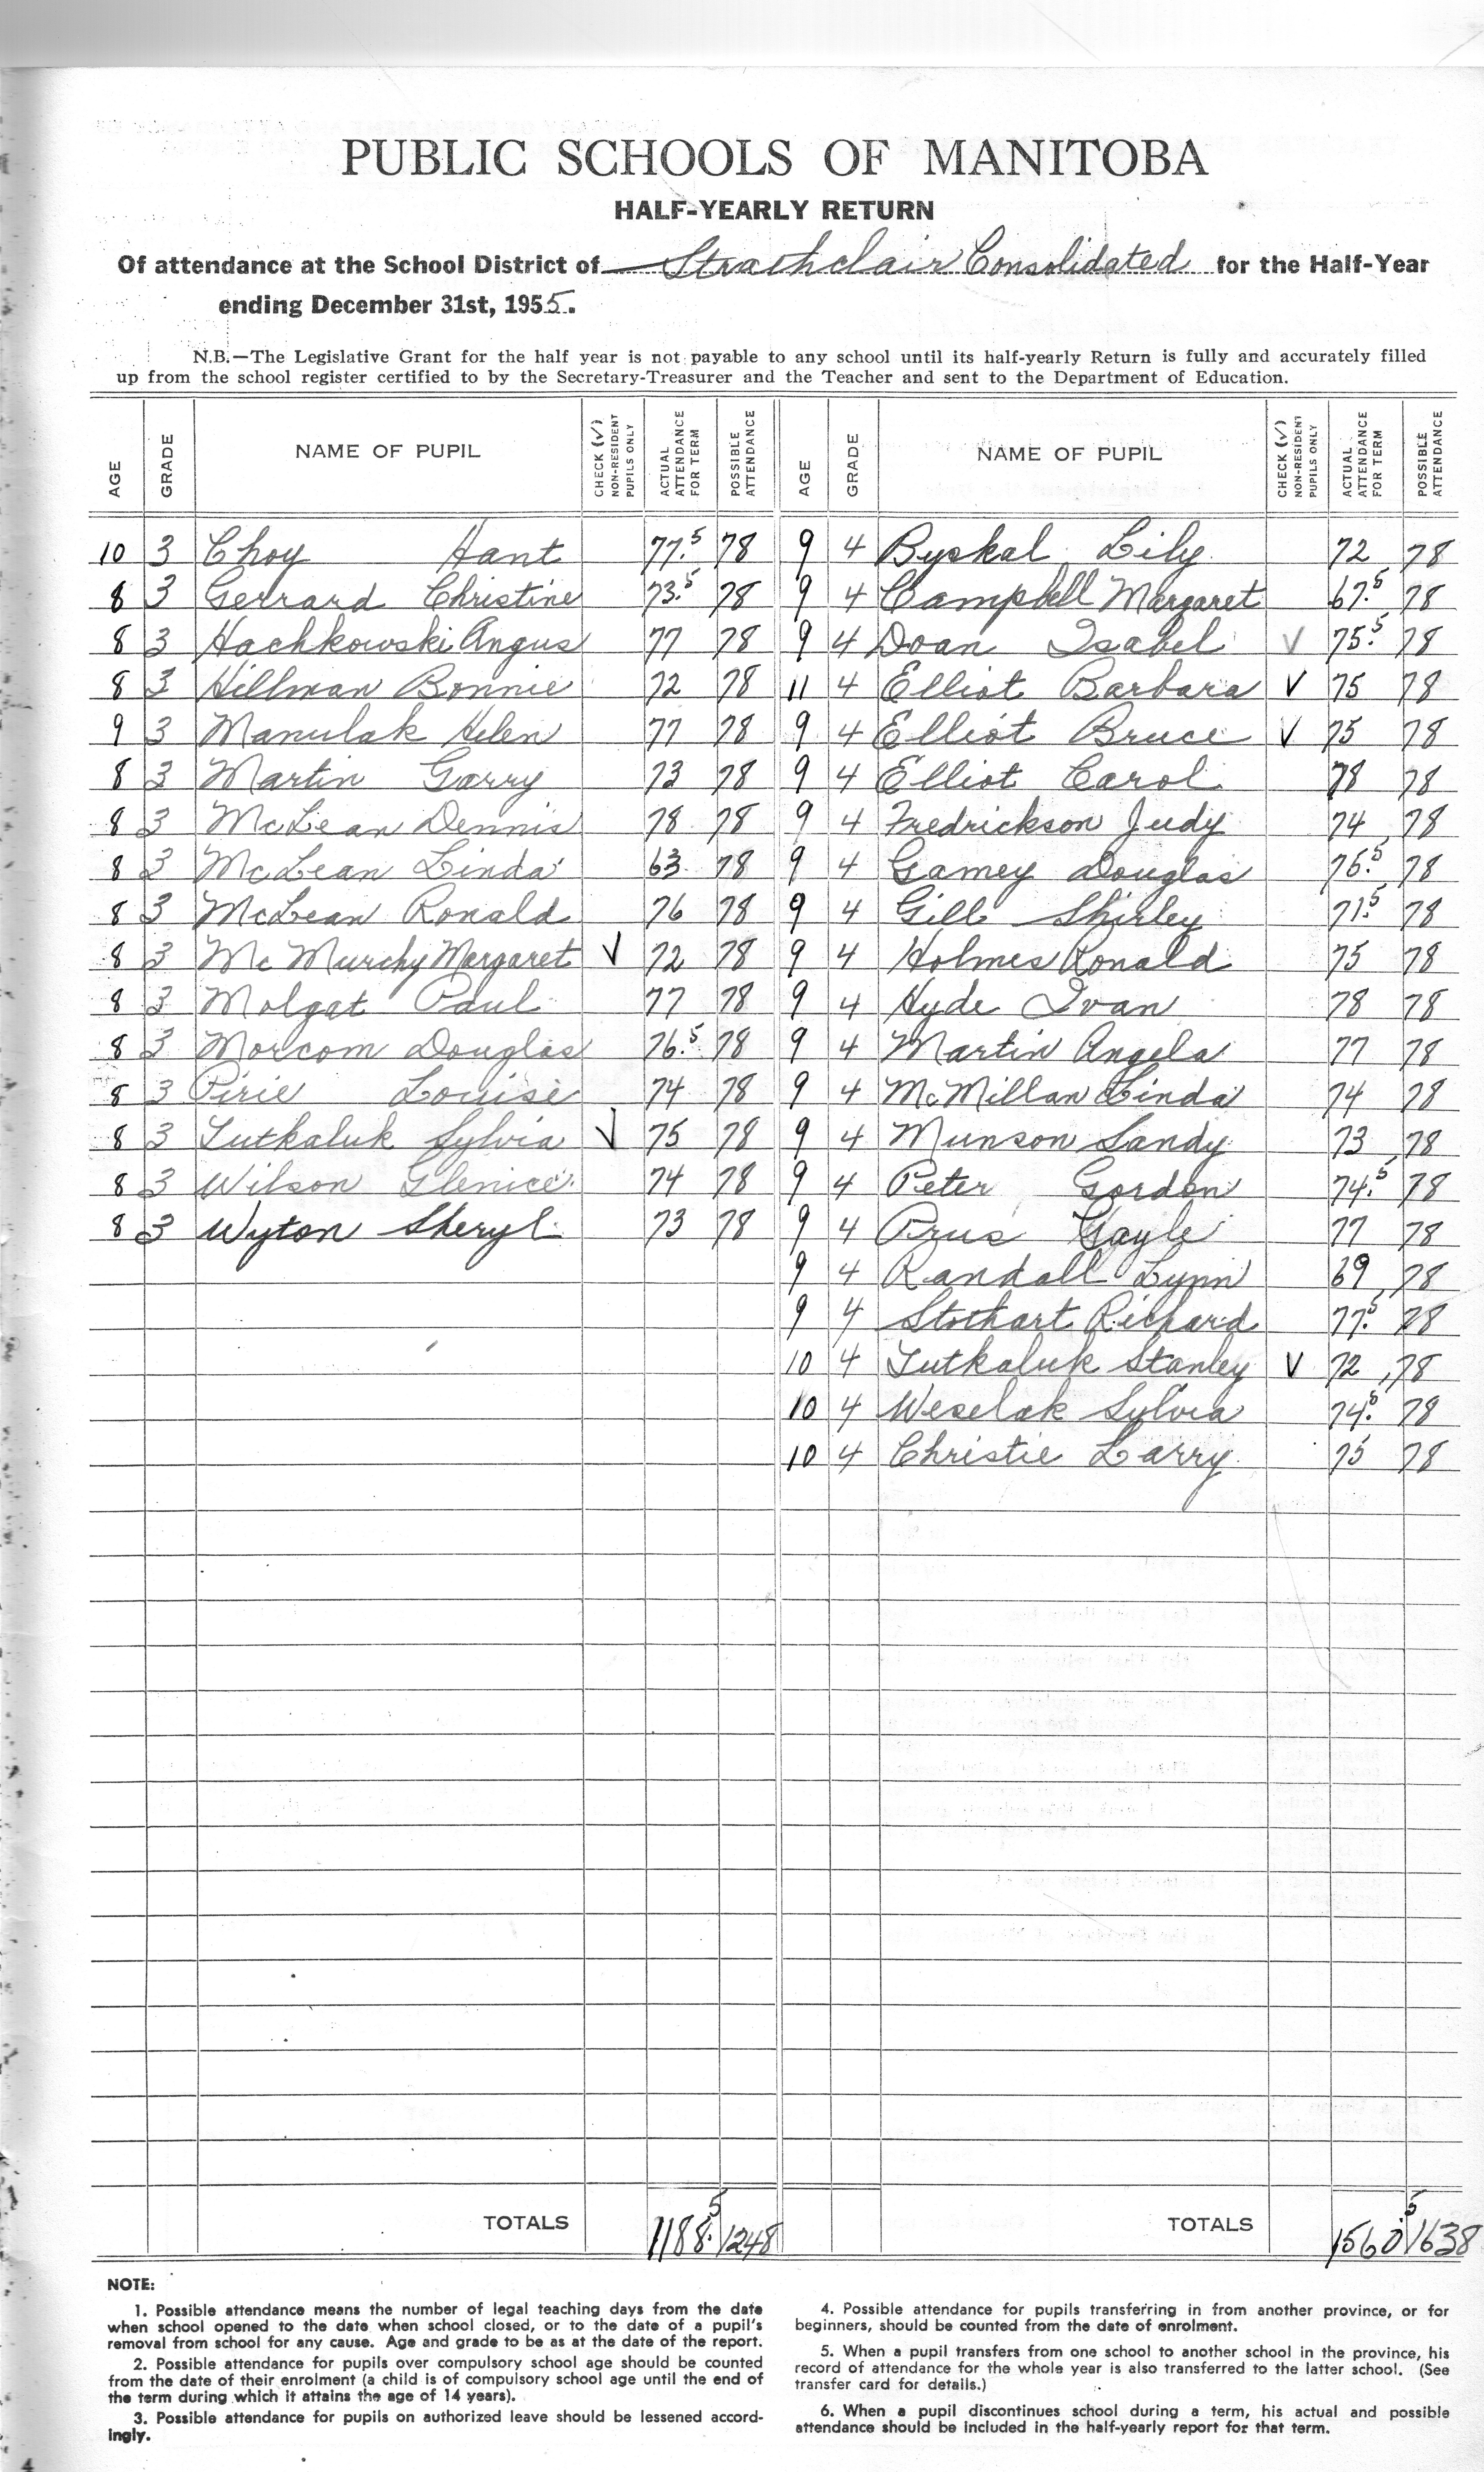 PUBLIC SCHOOLS OF MANITOBA
HALF-YEARLY RETURN
Of attendance at the School District of Strathclair Consolidated for the Half-Year
ending December 31st, 1955.
N.B.—The Legislative Grant for the half year is not payable to any school until its half-yearly Return is fully and accurately filled
up from the school register certified to by the Secretary-Treasurer and the Teacher and sent to the Department of Education.
AGE GRADE NAME OF PUPIL CHECK (√) NON-RESIDENT PUPILS ONLY ACTUAL ATTENDANCE FOR TERM POSSIBLE ATTENDANCE AGE GRADE NAME OF PUPIL CHECK (√) NON-RESIDENT PUPILS ONLY ACTUAL ATTENDANCE FOR TERM POSSIBLE ATTENDANCE
10 3 Choy Hant 77.5 78 9 4 Byskal Lily 72 78
8 3 Gerrard Christine 73.5 78 9 4 Campbell Margaret 67.5 78
8 3 Hachkowski Angus 77 78 9 4 Doan Isabel √ 75.5 78
8 3 Hillman Bonnie 72 78 11 4 Elliot Barbara √ 75 78
9 3 Manulak Helen 77 78 9 4 Elliot Bruce √ 75 78
8 3 Martin Garry 73 78 9 4 Elliot Carol 78 78
8 3 McLean Dennis 78 78 9 4 Fredrickson Judy 74 78
8 3 McLean Linda 63 78 9 4 Gamey Douglas 76.5 78
8 3 McLean Ronald 76 78 9 4 Gill Shirley 71.5 78
8 3 Mc Murchy Margaret √ 72 78 9 4 Holmes Ronald 75 78
8 3 Molgat Paul 77 78 9 4 Hyde Ivan 78 78
8 3 Morcom Douglas 76.5 78 9 4 Martin Angela 77 78
8 3 Pirie Louise 74 78 9 4 McMillan Linda 74 78
8 3 Tutkaluk Sylvia √ 75 78 9 4 Munson Sandy 73 78
8 3 Wilson Glenice 74 78 9 4 Peter Gordon 74.5 78
8 3 Wyton Sheryl 73 78 9 4 Prus Gayle 77 78
9 4 Randall Lynn 69 78
9 4 Stothart Richard 77.5 78
10 4 Tutkaluk Stanley √ 72 78
10 4 Weselak Sylvia 74.5 78
10 4 Christie Larry 75 78
TOTALS 1188.5 1248 TOTALS 1560.5 1638
NOTE:
1. Possible attendance means the number of legal teaching days from the date
when school opened to the date when school closed, or to the date of a pupil's
removal from school for any cause. Age and grade to be as at the date of the report.
2. Possible attendance for pupils over compulsory school age should be counted
from the date of their enrolment (a child is of compulsory school age until the end of
the term during which it attains the age of 14 years).
3. Possible attendance for pupils on authorized leave should be lessened accord-
ingly.
4. Possible attendance for pupils transferring in from another province, or for
beginners, should be counted from the date of enrolment.
5. When a pupil transfers from one school to another school in the province, his
record of attendance for the whole year is also transferred to the latter school. (See
transfer card for details.)
6. When a pupil discontinues school during a term, his actual and possible
attendance should be included in the half-yearly report for that term.